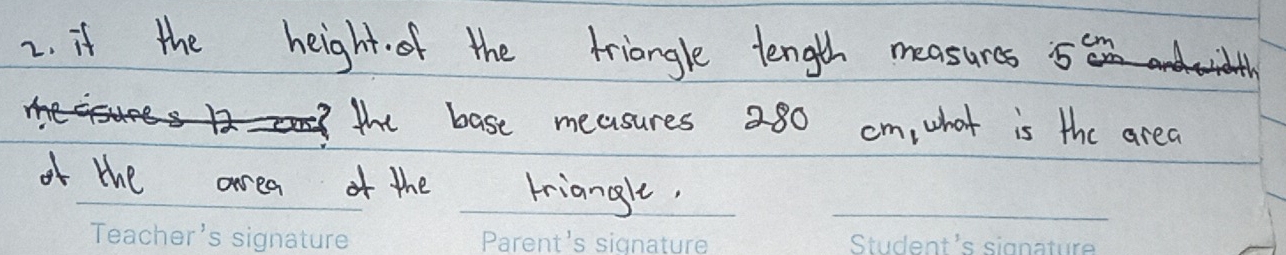 2. if the height.of the triangle length measures 5 cm cm and width
measures 12 cm? the base measures 280 cm, what is the area
of the area of the triangle.
Teacher's signature Parent's signature Student's signature